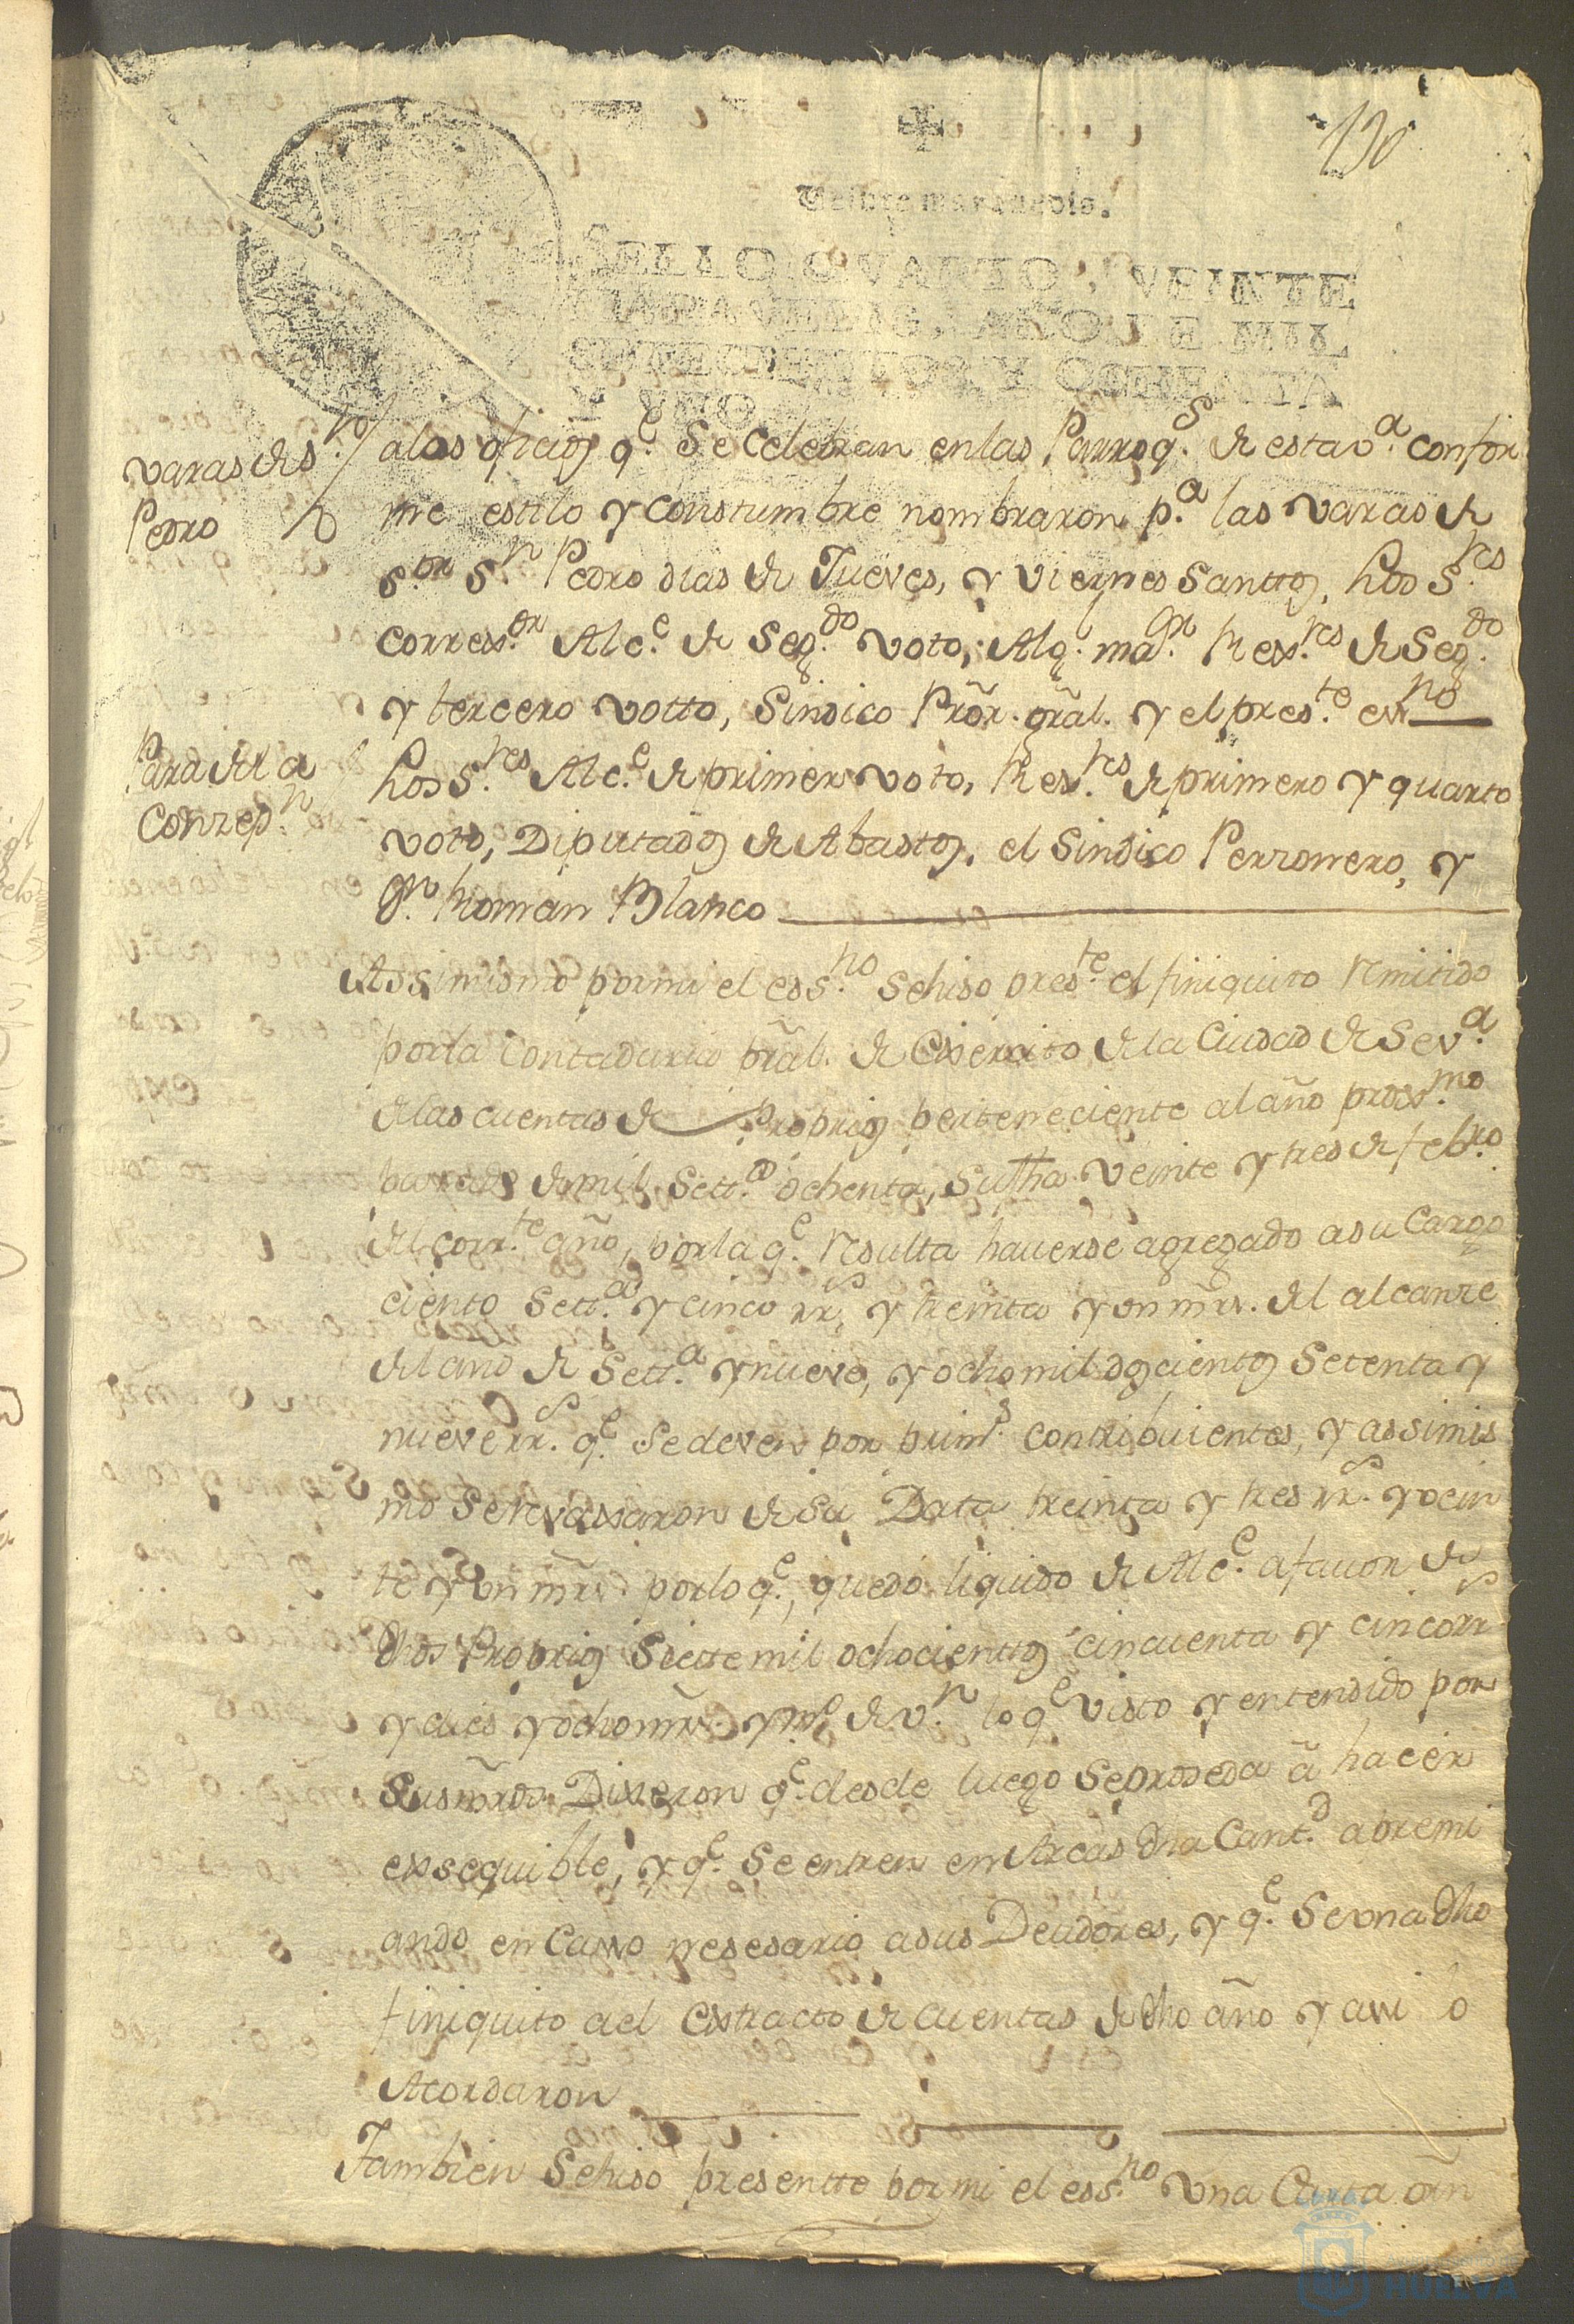 130
Veinte maravedis.
SELLO QVARTO, VEINTE
MARAVEDIS, AÑO DE MIL
SETECIENTOS Y OCHENTA
Y VNO.
varas de s.n
Pedro
alos oficios q.e se celebran en las Parroq.s de esta v.a confor
me estilo y constumbre nombraron p.a las varas de
s.or S.n Pedro dias de Jueves, y Viernes Santtos, hos S.res
Correx.or Alc.e de Seg.do voto, Alg.l ma.or Rex.res de Seg.do
y tercero votto, Sindico Prõr. grãl. y el pres.te ess.no
Para de la
Conzep.n
hos S.res Alc.e de primer voto, Rex.res de primero y quarto
voto, Diputados de Abastos, el Sindico Perronero, y
D.n Roman Blanco
Assimismo por mi el ess.no se hiso pres.te el finiquito remitido
por la Contaduria prãl. de Exercito de la Ciudad de Sev.a
de las cuentas de Proprios perteneciente al año prox.mo
pasado de mil Sett.os ochenta, su fha veinte y tres de feb.ro
del corr.te año, por la q.e resulta haverse agregado a su Cargo
ciento sett.a y cinco rr.s y treinta y un mrs. del alcanze
del año de Sett.a y nueve, y ocho mil doscientos setenta y
nueve rr.s q.e se deven por prim.s contribuientes, y assimis
mo se revaxaron de su Data treinta y tres rr.s y vein
te y un mrs. por lo q.e, quedó liquido de Alc.e a favor de
dhos Proprios Siette mil ochocienttos cincuenta y cinco rr.s
y dies y ocho mrs. y m.o de v.n lo q.e visto y entendido por
Sus mrds. Dixeron q.e desde luego se proseda ã hacer
exsequible, y q.e se entren en Arcas dha Cant.d apremi
ando en Casso nesesario a sus Deudores, y q.e se vna dho
finiquito a el extracto de cuentas de dho año y assi lo
Acordaron
Tambien se hiso presentte por mi el ess.no vna Carta orn
HUELVA